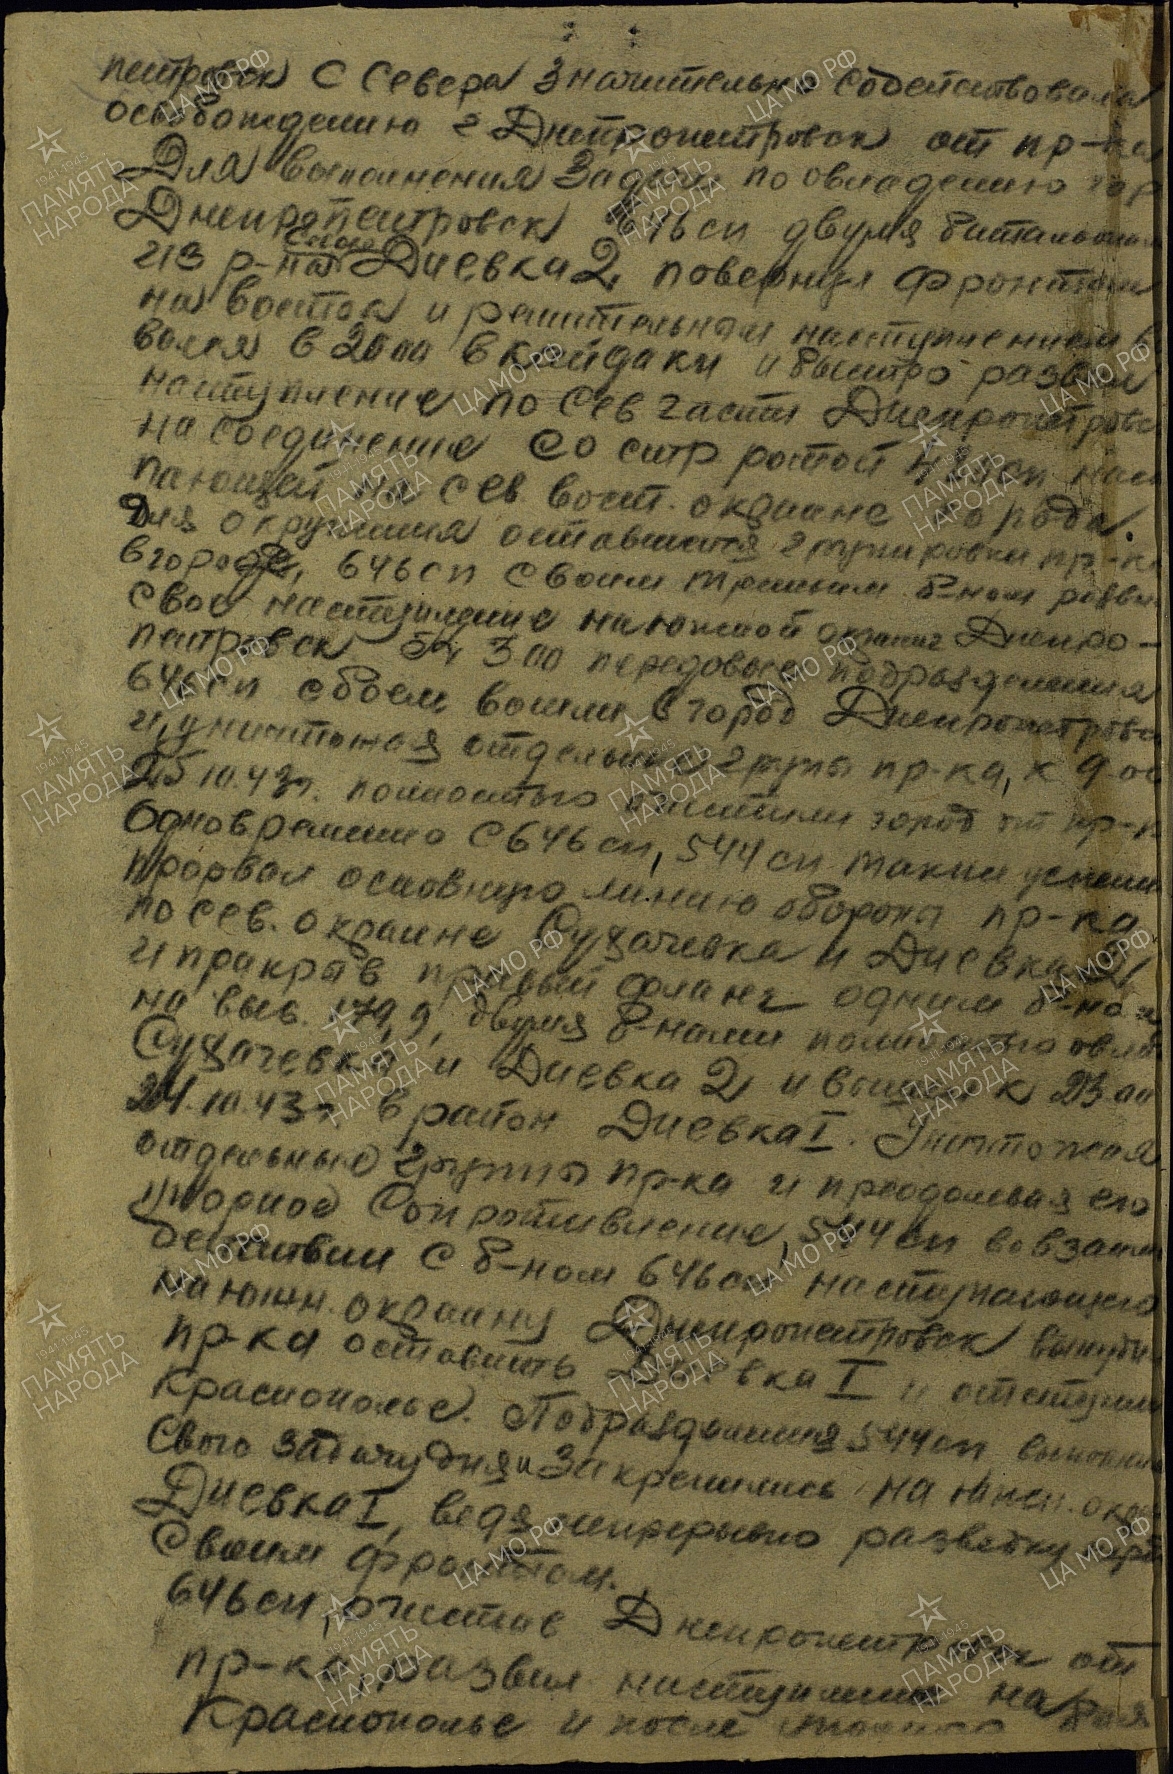 петровск с севера значительно содействовала
освобождению г Днепропетровск от пр-ка
Для выполнения задачи по овладению гор
Днепропетровск 646 сп двумя баталионами
из р-на Сухач. Диевка 2, повернул фронтом
на восток и решительным наступлением
вался в 20 00 в Кайдаки и быстро развил
наступление по сев части Днепропетровск
на соединение со стр ротой сп нас
пающей на сев. вост. окраине города.
Для окружения оставшейся группировки пр-ка
в городе, 646 сп своим третьим б-ном развил
свое наступление на южной окраине Днепро-
петровск 3 00 передовые подразделения
646 сп с боем вошли в город Днепропетровск
и, уничтожая отдельные группы пр-ка, к 9.00
25.10.43г. полностью очистили город от пр-ка
Одновременно с 646 сп, 544 сп также успешно
прорвал основную линию обороны пр-ка
по сев. окраине Сухачевка и Диевка 2,
и прикрыв правый фланг одним б-ном
на выс. 179,9, двумя б-нами полностью овлад
Сухачевкой и Диевка 2, и вышел к 23.00
24.10.43г в район Диевка I. Уничтожая
отдельные группы пр-ка и преодолевая его
упорное сопротивление, 544 сп во взаим
действии с б-ном 646 сп, наступающего
на южн. окраину Днепропетровск вынудил
пр-ка оставить Диевка I и отступить
Краснополье. Подразделения 544 сп выполнив
свою задачу дня и закрепились на южн. окр
Диевка I, ведя непрерывно разведку перед
своим фронтом.
646 сп, очистив Днепропетровск от
пр-ка, развил наступление на
Краснополье и после